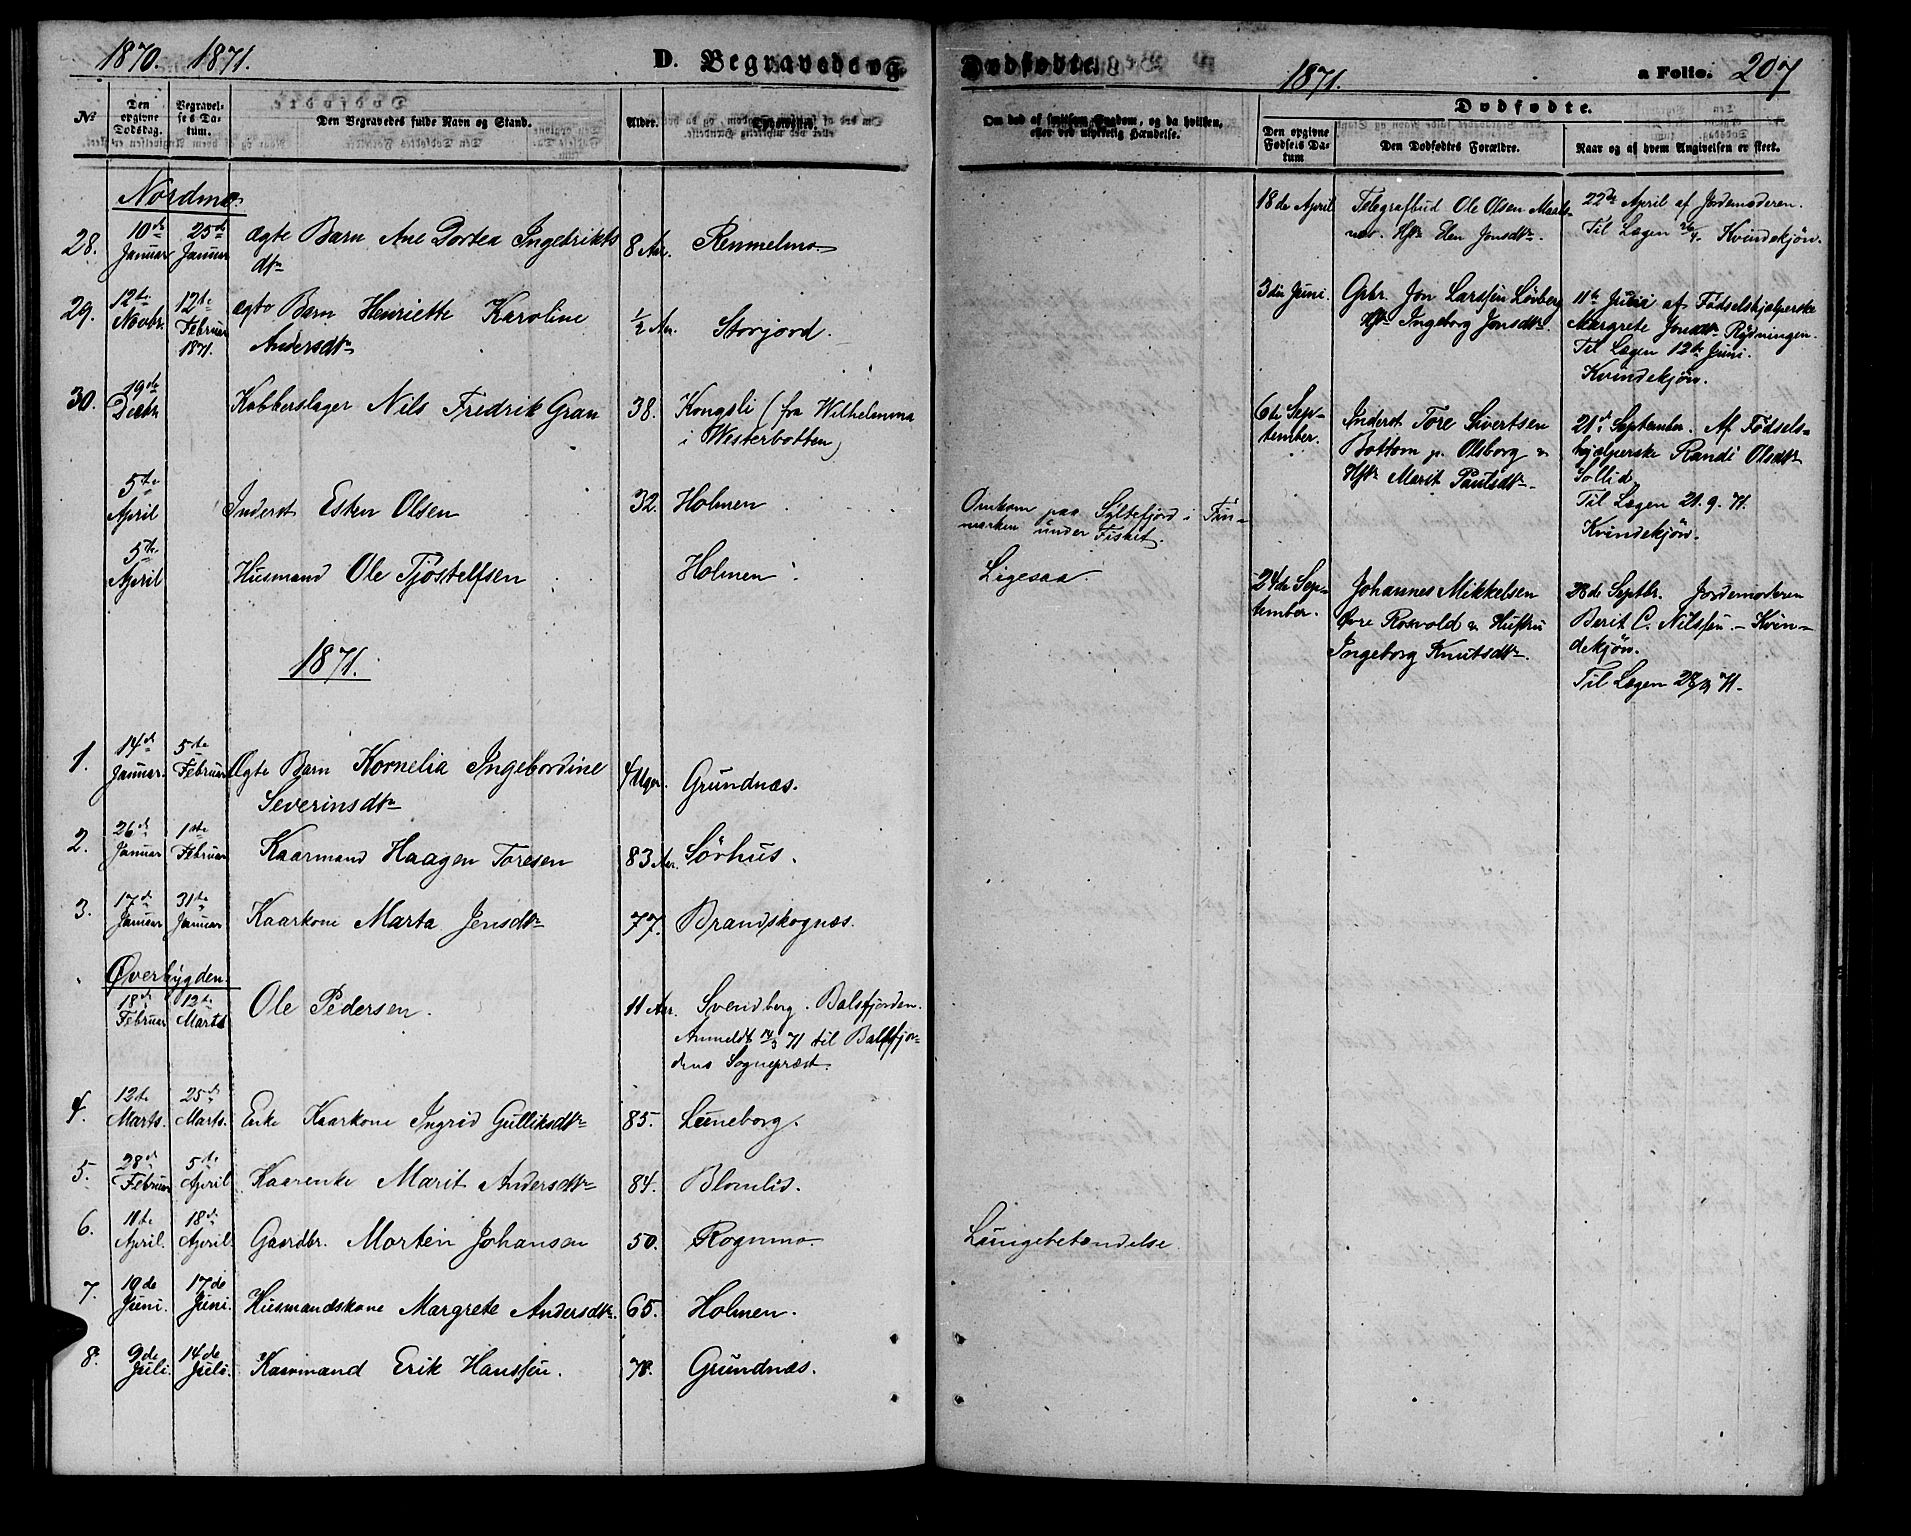 1870. 1871.
D. Begravede og
№
Den opgivne Dödsdag.
Begravelses Datum.
Den Begravedes fulde Navn og Stand.
Alder.
Opholdssted.
Nordmo.
28. 10de Januar 25de Januar ægte Barn Ane Dortea Ingebrikts
dtr 8 Aar. Remmelmo
29. 12te Novbr. 12te Februar 1871. ægte Barn Henriette Karoline
Andersdtr ½ Aar. Storjord.
30. 19de Decbr. Kobberslager Nils Fredrik Gran 38. Kongsli (fra Wilhelmma
i Westerbotten)
5te April Inderst Esten Olsen 32. Holmen
5te April Husmand Ole Tjostelfsen Holmen
1871.
1. 14de Januar. 5te Februar Ægte Barn Kornelia Ingebordine
Severinsdtr 4 Uger. Grundnæs.
2. 26de Januar 1ste Februar Kaarmand Haagen Toresen 83 Aar. Sörhus.
3. 17de Januar 31te Januar Kaarkone Marta Jensdtr 77. Brandskognæs.
Øverbygden.
18de Februar 12te Marts Ole Pedersen. 11 Aar. Svendberg. Balsfjorden.
Anmeldt 14/3 71 til Balsfjor-
dens Sognepræst.
4. 12te Marts. 25de Marts. Enke Kaarkone Ingrid Gulliksdtr 85. Luneborg.
5. 28de Februar 5te April Kaarenke Marit Andersdtr 84. Blomlid.
6. 11te April. 18de April. Gaardbr. Morten Johansen 50. Rognmo
7. 10de Juni. 17de Juni. Husmandskone Margrete Andersdtr. 65. Holmen.
8. 9de Juli. 14de Juli. Kaarmand Erik Hanssen. 78. Grundnæs.
Dödfödte.
1871.
a Folio. 207
Om død af smitsom Sygdom, og da hvilken,
eller ved ulykkelig Hændelse.
Dødfødte.
Den opgivne Fødsels Datum
Den Dødfødtes Forældre.
Naar og af hvem Angivelsen er skeet.
Omkom paa Syltefjord i Fin-
marken under Fisket.
Ligesaa.
Lungebetændelse.
18de April Telegrafbud Ole Olsen Maals-
næs. Hstr Elen Jonsdtr.
22de April af Jordemoderen.
Til Lægen 26/4. Kvindekjön.
3die Juni. Gbr. Jon Larssen Lövberg
Hstr Ingeborg Jonsdtr.
11te Juni af Födselshjælperske
Margrete Jonsdtr Rydningen.
Til Lægen 12te Juni.
Kvindekjön.
6te Sep-
tember. Inderst Tore Sivertsen
Bottom p. Olsborg &
Hstr Marit Paulsdtr.
21de September. Af Födsels-
hjælperske Randi Olsdtr
Sollid
Til Lægen 21.9.71.
Kvindekjön.
24de Sep-
tember. Johannes Mikkelsen
Øvre Rosvold & Hustru
Ingeborg Knutsdtr.
28de Septbr. Jordemoderen
Berit C. Nilssen. - Kvin-
dekjön.
Til Lægen 28/9 71.